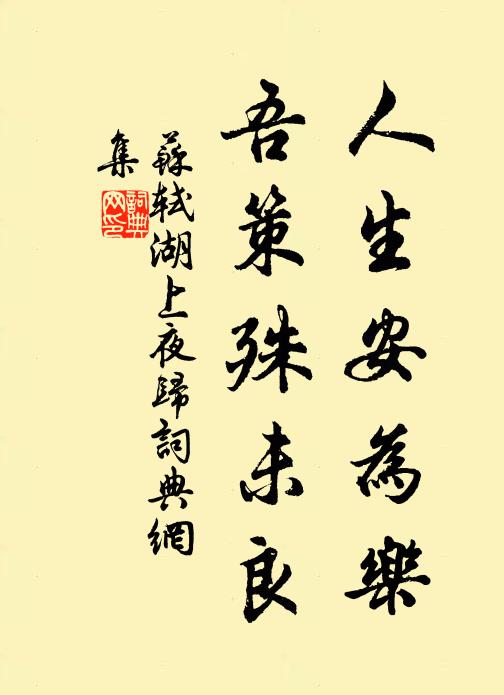 人生安為樂
吾策殊未良
蘇軾湖上夜歸詞典網
集
詞典
网印